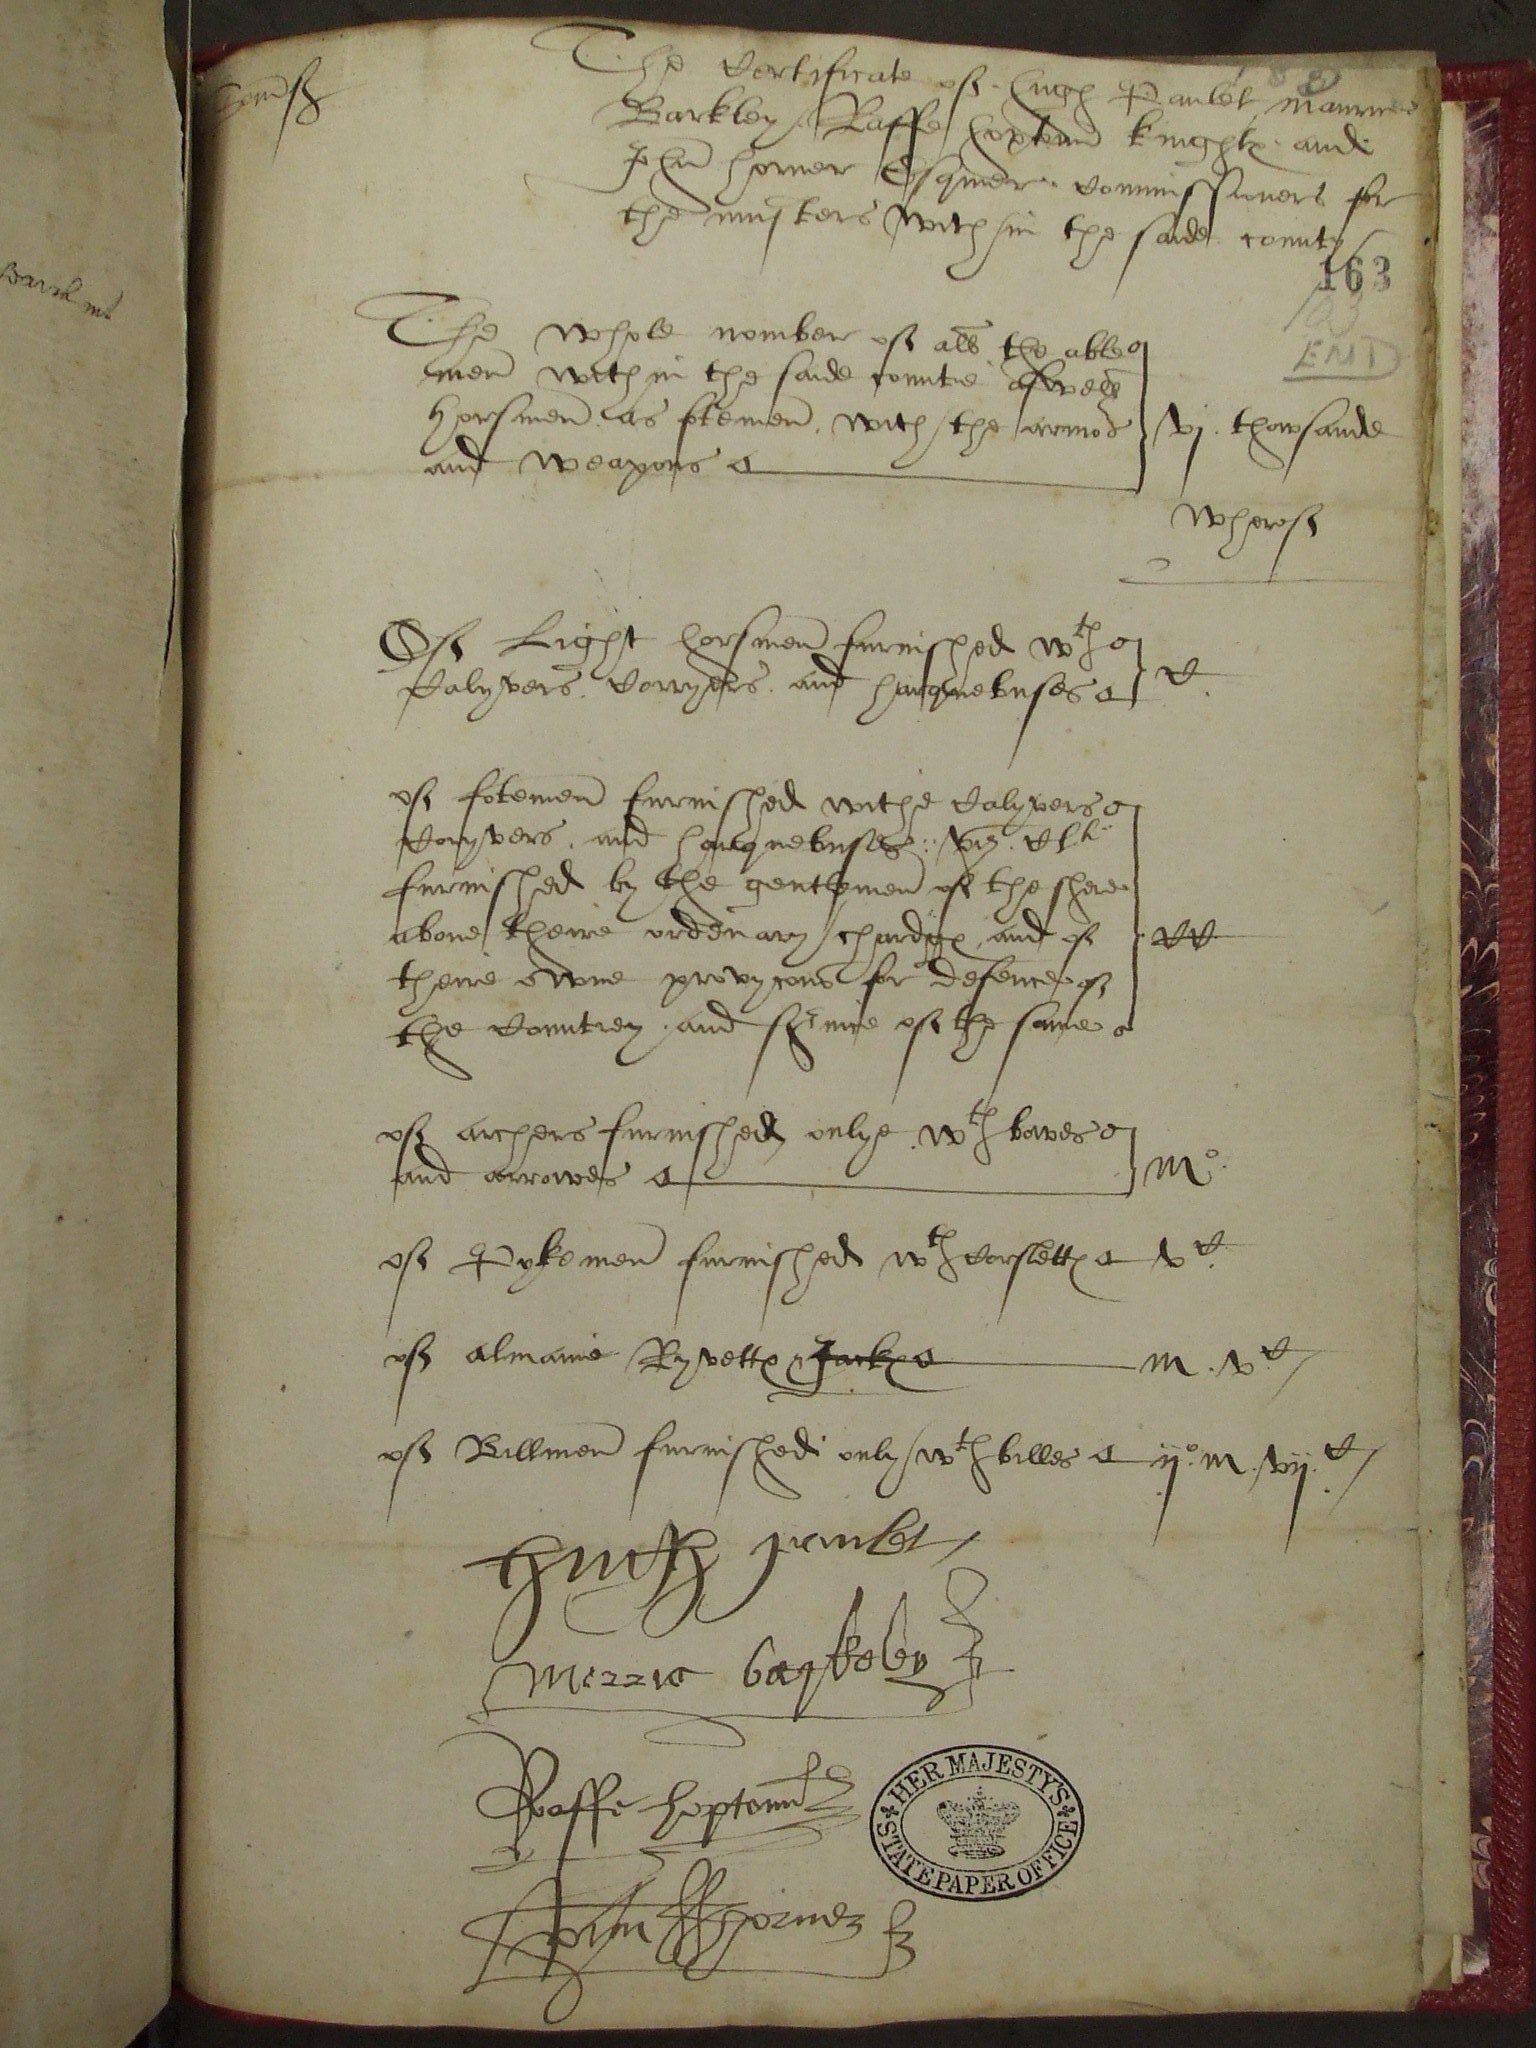 Som's
The Certificate of Hugh Paulet Maurice
Barkley, Raffe hopton knightes and
John horner Esquier Commissioners for
the musters within the saide county
163
103
EMD
The whole nomber of all the able
men within the saide countie aswell
horsmen as fotemen, with the armor
and weapons
vj thowsande
Wherof
Of Light horsmen furnished wth
Calyvers Corryers and harquebuses
C
of fotemen furnished withe Calyvers
Coryvers, and harquebuses viz. CLti
furnished by the gentlemen of the shere
above theire ordenary chardges, and of
theire owne provycons for defence of
the Countrey and s'vice of the same
CC
of archers furnished onlye wth bowes
and arrowes
Mo
of Pykemen furnished wth Corslettes vC
of almaine Ryvettes Jackes M. vC
of Billmen furnished only wth billes ijo M. vijC
Hugh Paulet
Merris barkeley
Raffe hopton
John Horner
HER MAJESTY'S
STATE PAPER OFFICE